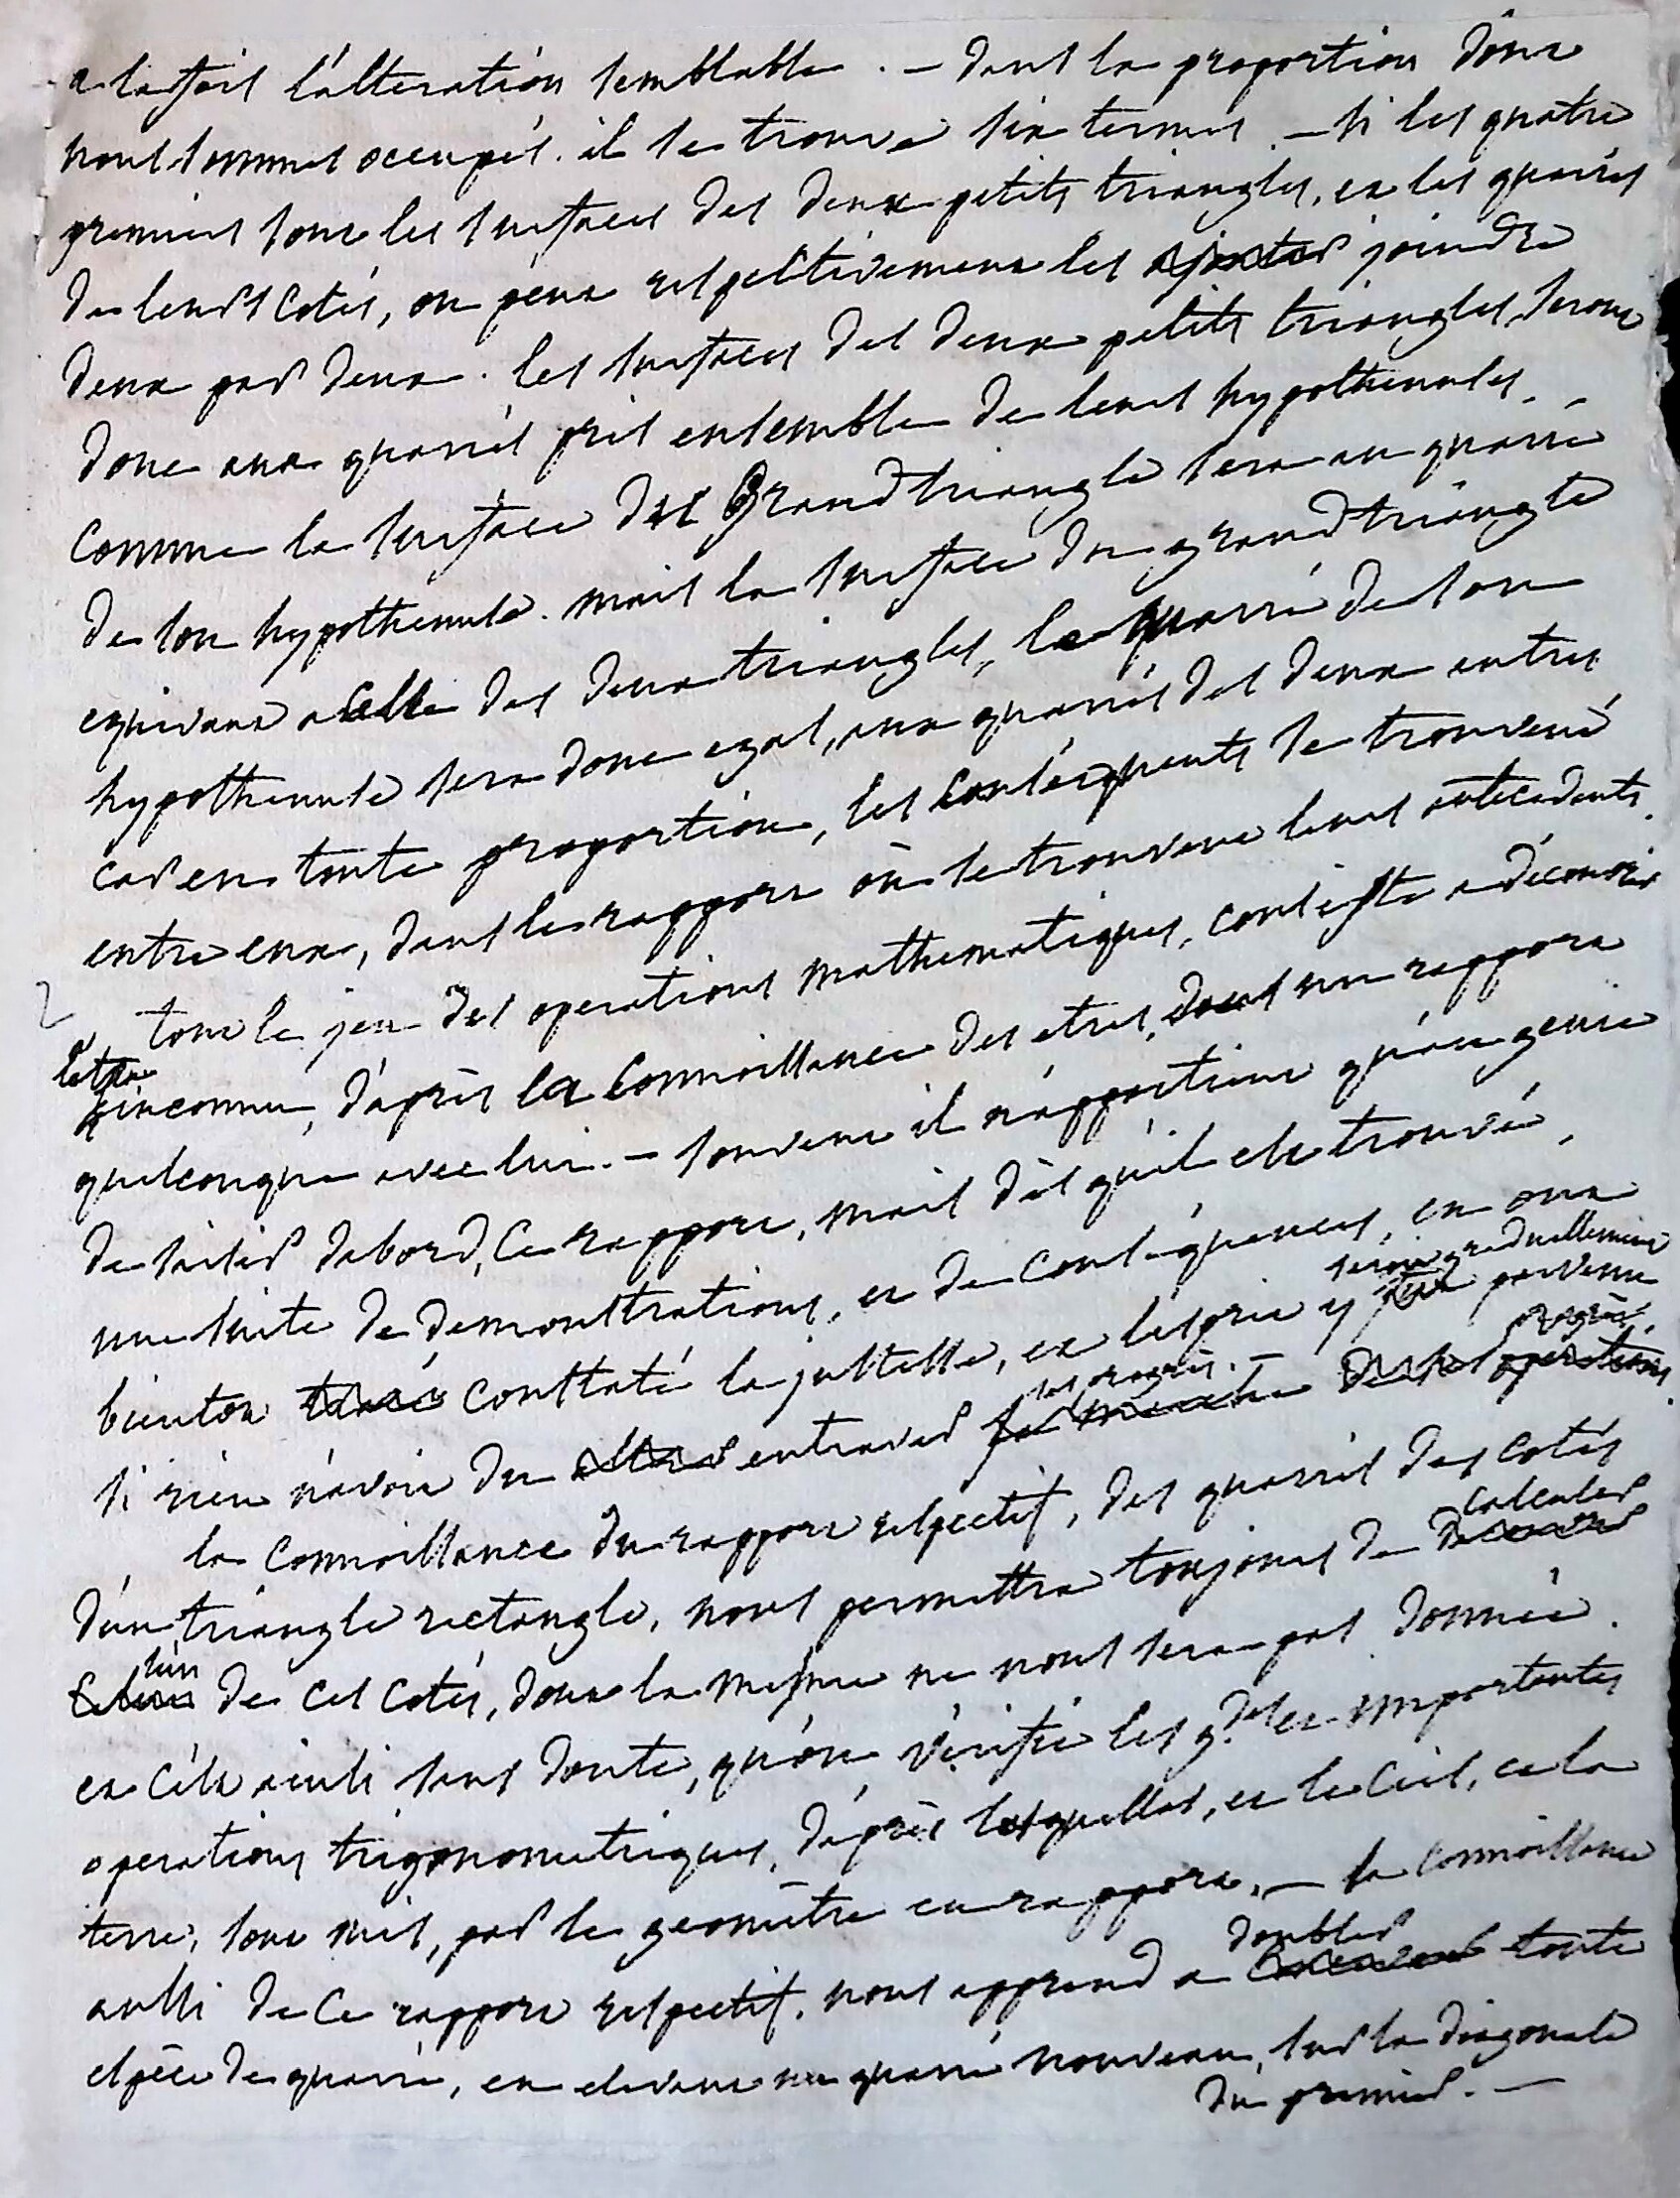 a la fois l'alteration semblable. — dans la proportion dont
nous sommes occupés. il se trouve six termes. — si les quatre
premiers sont les surfaces des deux petits triangles, et les quarrés
de leurs cotés, on peut respectivement les ajouter joindre
deux par deux. les surfaces des deux petits triangles, seront
donc aux quarrés pris ensemble de leurs hypothenuses.
comme la surface du Grand triangle sera au quarré
de son hypothenuse. mais la surface du grand triangle
equivaut a celle des deux triangles, le quarré de son
hypothenuse sera donc egal, aux quarrés des deux autres
car en toute proportion, les conséquents se trouvent
entre eux, dans le rapport où se trouvent leurs antecedents.
tout le jeu des operations mathematiques, consiste a découvrir
l'etre inconnu, d'après la connoissance des etres, dont un rapport
quelconque avec lui. — souvent il n'appartient qu'au genie
de saisir dabord, ce rapport, mais dès qu'il est trouvé,
une suite de demonstrations, et de conséquences, en ont
bientot constaté la justesse, et l'esprit y seroit graduellement parvenu
si rien n'avoit du entraver ses progrès. —
la connoissance du rapport respectif, des quarrés des cotés
d'un triangle rectangle, nous permettra toujours de calculer
l'un de ces cotés, dont la mesure ne nous sera pas donnée.
et c'est ainsi sans doute, qu'on vérifie les g.des et importantes
operations trigonometriques, d'après lesquelles, et le Ciel, et la
terre, sont mis, par le geomètre en rapport, — la connoissance
aussi de ce rapport respectif, nous apprend a doubler toute
espèce de quarré, en elevant un quarré nouveau, sur la diagonale
du premier. —